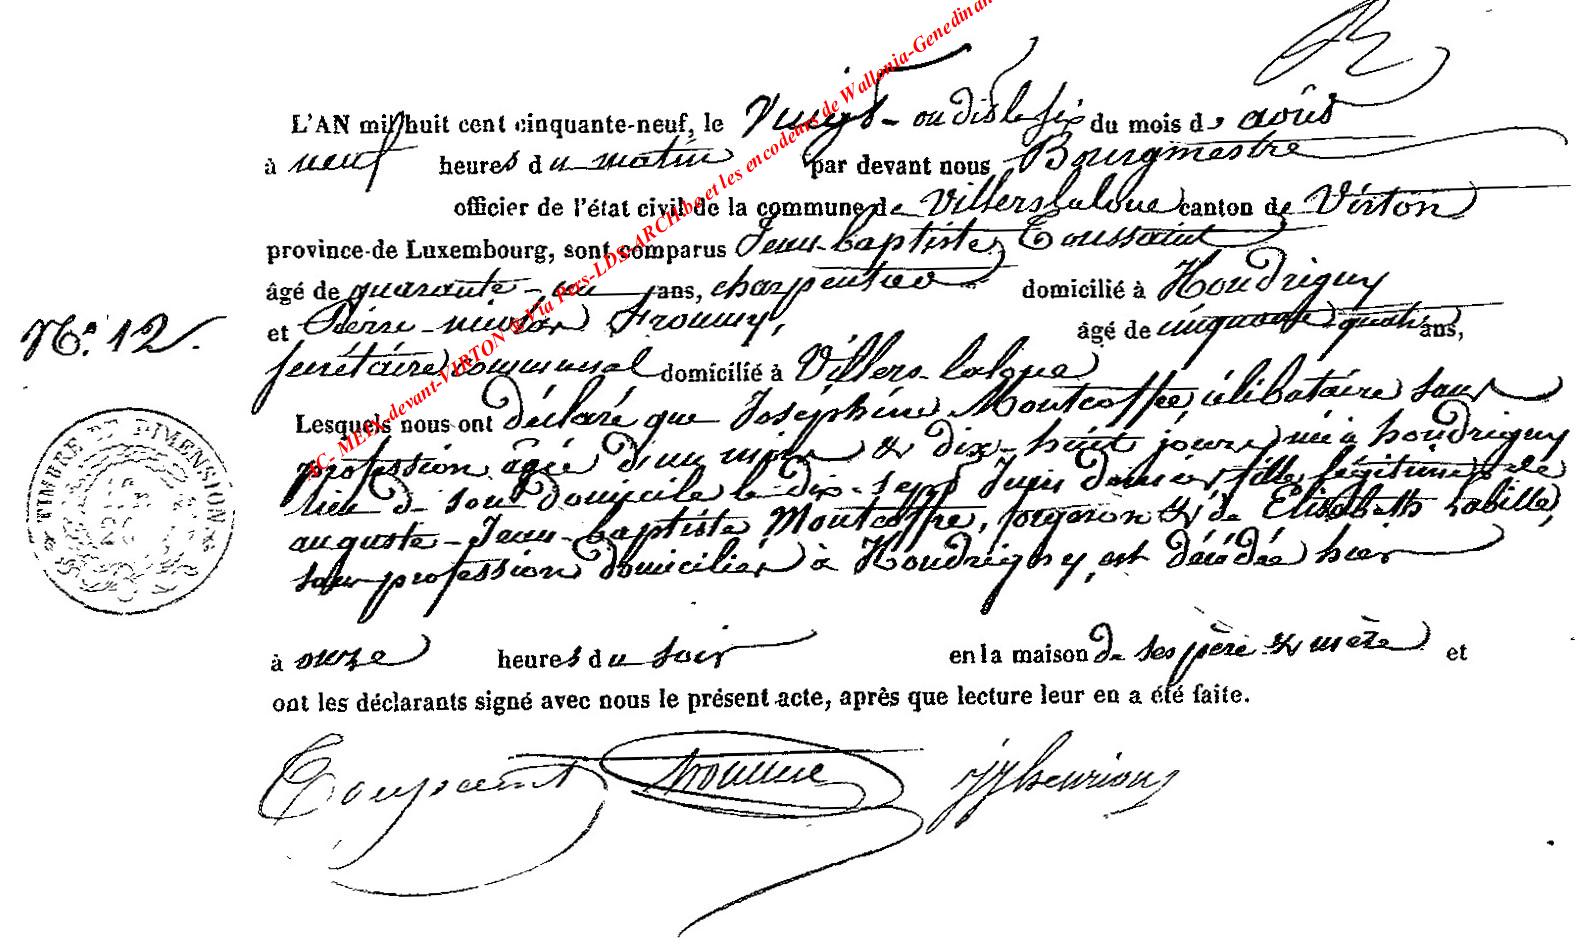 L'AN mil huit cent cinquante-neuf, le Vingt- ou dis le six du mois d' août
à neuf heures du matin par devant nous Bourgmestre
officier de l'état civil de la commune de Villers la loue canton de Virton
province de Luxembourg, sont comparus Jean-baptiste Toussaint
âgé de quarante-un ans, charpentier domicilié à Houdrigny
et Pierre-nicolas Froumy, âgé de cinquante quatre ans,
N° 12.
secrétaire communal domicilié à Villers-laloue
Lesquels nous ont déclaré que Joséphine Montcoffre, célibataire sans
profession âgée d'un mois & dix-huit jours, née à houdrigny
lieu de son domicile le dix-sept Juin dernier, fille légitime de
auguste-Jean-baptiste Montcoffre, forgeron & de Elisabeth Labille,
sans profession domiciliés à Houdrigny, est décédée hier
à onze heures du soir en la maison de ses père & mère et
ont les déclarants signé avec nous le présent acte, après que lecture leur en a été faite.
Toussaint
TIMBRE DE DIMENSION
AC- MEIX-devant-VIRTON & Via Pers-LDS-ARCH.be et les encodeurs de Wallonia-Genedinan